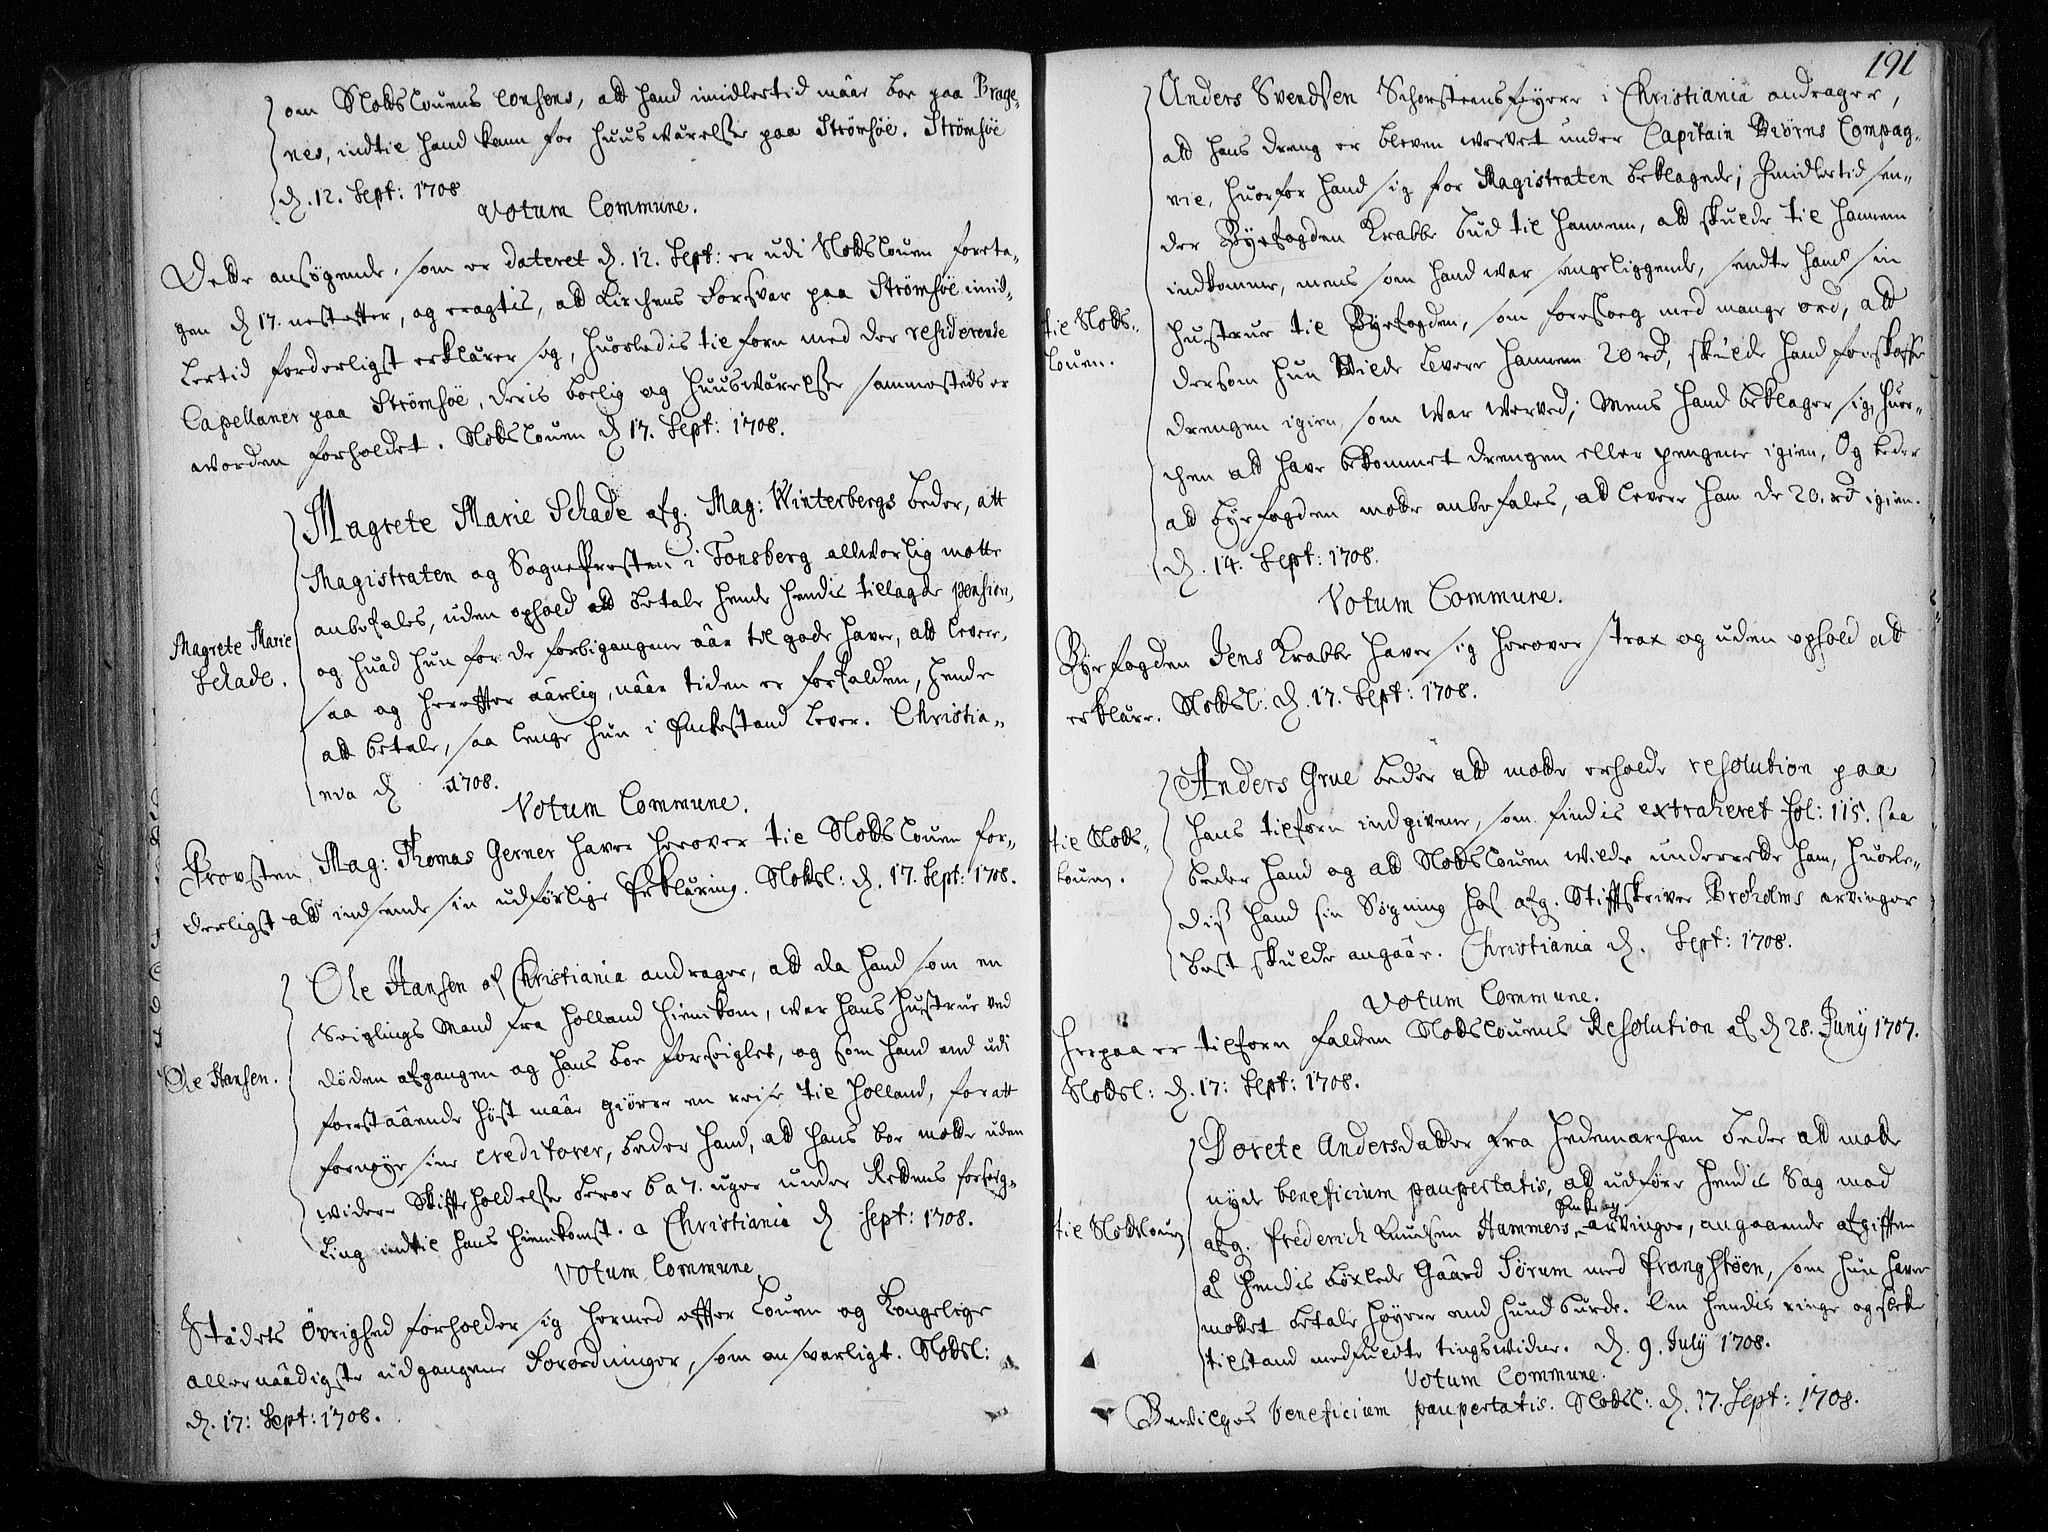 om Slotslouens consens, att hand imidlertid maae boe paa Brage-
nes, indtil hand kann faae huusværelse paa Strømsøe. Strømsøe
d. 12. Sept: 1708
Votum Commune.
Dette ansøgende, som er dateret d. 12. Sept: er udi Slotslouen foreta-
gen d 17. nestefter, og eragtis, att Kirchens Forsvar paa Strømsøe imid-
lertid forderligst erklærer sig, huorledis tilforn med der residerende
Capellaner paa Strømsøe, deris boelig og huusværelse sammesteds er
worden forholdet. Slotslouen d 17. Sept: 1708.
Magrete Marie Schade afg. Mag: Winterbergs beder, att
Magistraten og SognePresten i Tonsberg allvorlig motte
anbefales, uden ophold att betale hende hendis tillagde pension,
og huad hun for de forbigangene aar til gode haver, att levere,
saa og herefter aarlig, naar tiden er forfalden, hende
att betale, saa lenge hun i Enkestand lever. Christia-
nia d 1708.
Magrete Marie
Schade.
Votum Commune.
Provsten, Mag: Thomas Gerner haver herover til Slotslouen for-
derligst att indsende sin udførlige Erklæring. Slotsl: d. 17. Sept: 1708.
Ole Hansen af Christiania andrager, att da hand som en
Seiglings Mand fra Holland hiemkom, war hans hustrue ved
døden afgangen og hans boe forseiglet, og som hand end udi
forestaaende høst maae giøre en reise til Holland, for att
fornøye sine Creditorer, beder hand, att hans boe motte uden
widere Skifteholdelse beroe 6 a 7. uger under Rettens forseig-
ling indtil hans hiemkomst. a Christiania d Sept: 1708.
Ole Hansen.
Votum Commune
Stædets Øvrighed forholder sig hermed efter Louen og Kongelige
allernaadigste udgangene Forordninger, som ansvarligt. Slotsl:
d. 17: Sept: 1708.
191
Anders Svendsen Schorsteensfeyere i Christiania andrager,
att hans dreng er bleven wervet under Capitain Biørns Compag-
nie, huorfor hand sig for Magistraten beklagede; Imidlertid sen-
der Byefogden Krabbe bud til hannem, att skulde til hannem
indkomme, mens som hand war sengeliggende, sendte hand sin
hustrue til Byefogden, som foreslog med mange ord, att
dersom hun wilde levere hannem 20 rd, skulde hand forskaffe
drengen igien, som war werved; Mens hand beklager sig, huer-
chen att have bekommet drengen eller pengene igien, Og beder
att byefogden motte anbefales, att levere ham de 20. rd igien.
d. 14. Sept: 1708.
til Slots-
louen.
Votum Commune.
Byefogden Jens Krabbe haver sig herover strax og uden ophold att
erklære. Slotsl: d. 17. Sept: 1708.
Anders Grue beder att motte erholde resolution paa
hans tilforn indgivene, som findis extraheret fol: 115. saa
beder hand og att Slotslouen wilde underrette ham, huorle-
diss hand sin Søgning hos afg. Stiftskriver Broholms arvinger
best skulde angaae. Christiania d. Sept: 1708.
til Slots-
louen.
Votum Commune.
Herpaa er tilforn falden Slotslouens Resolution af d 28. Junij 1707.
Slotsl: d. 17: Sept: 1708.
Dorete Andersdatter fra Hedemarchen beder att motte
nyde beneficium paupertatis, att udføre hendis Sag mod
afg. Frederich Knudsen Hammers Enke og arvinger, angaaende afgiften
af hendis böxlede Gaard Sørum med Frangstøen, som hun haver
mottet betale høyere end hund burde. Om hendis ringe og slette
tilstand medfuldte tingswidne. d. 9. July 1708.
til Slotslouen
Votum Commune.
Bevilges beneficium paupertatis. Slotsl: d. 17. Sept: 1708.